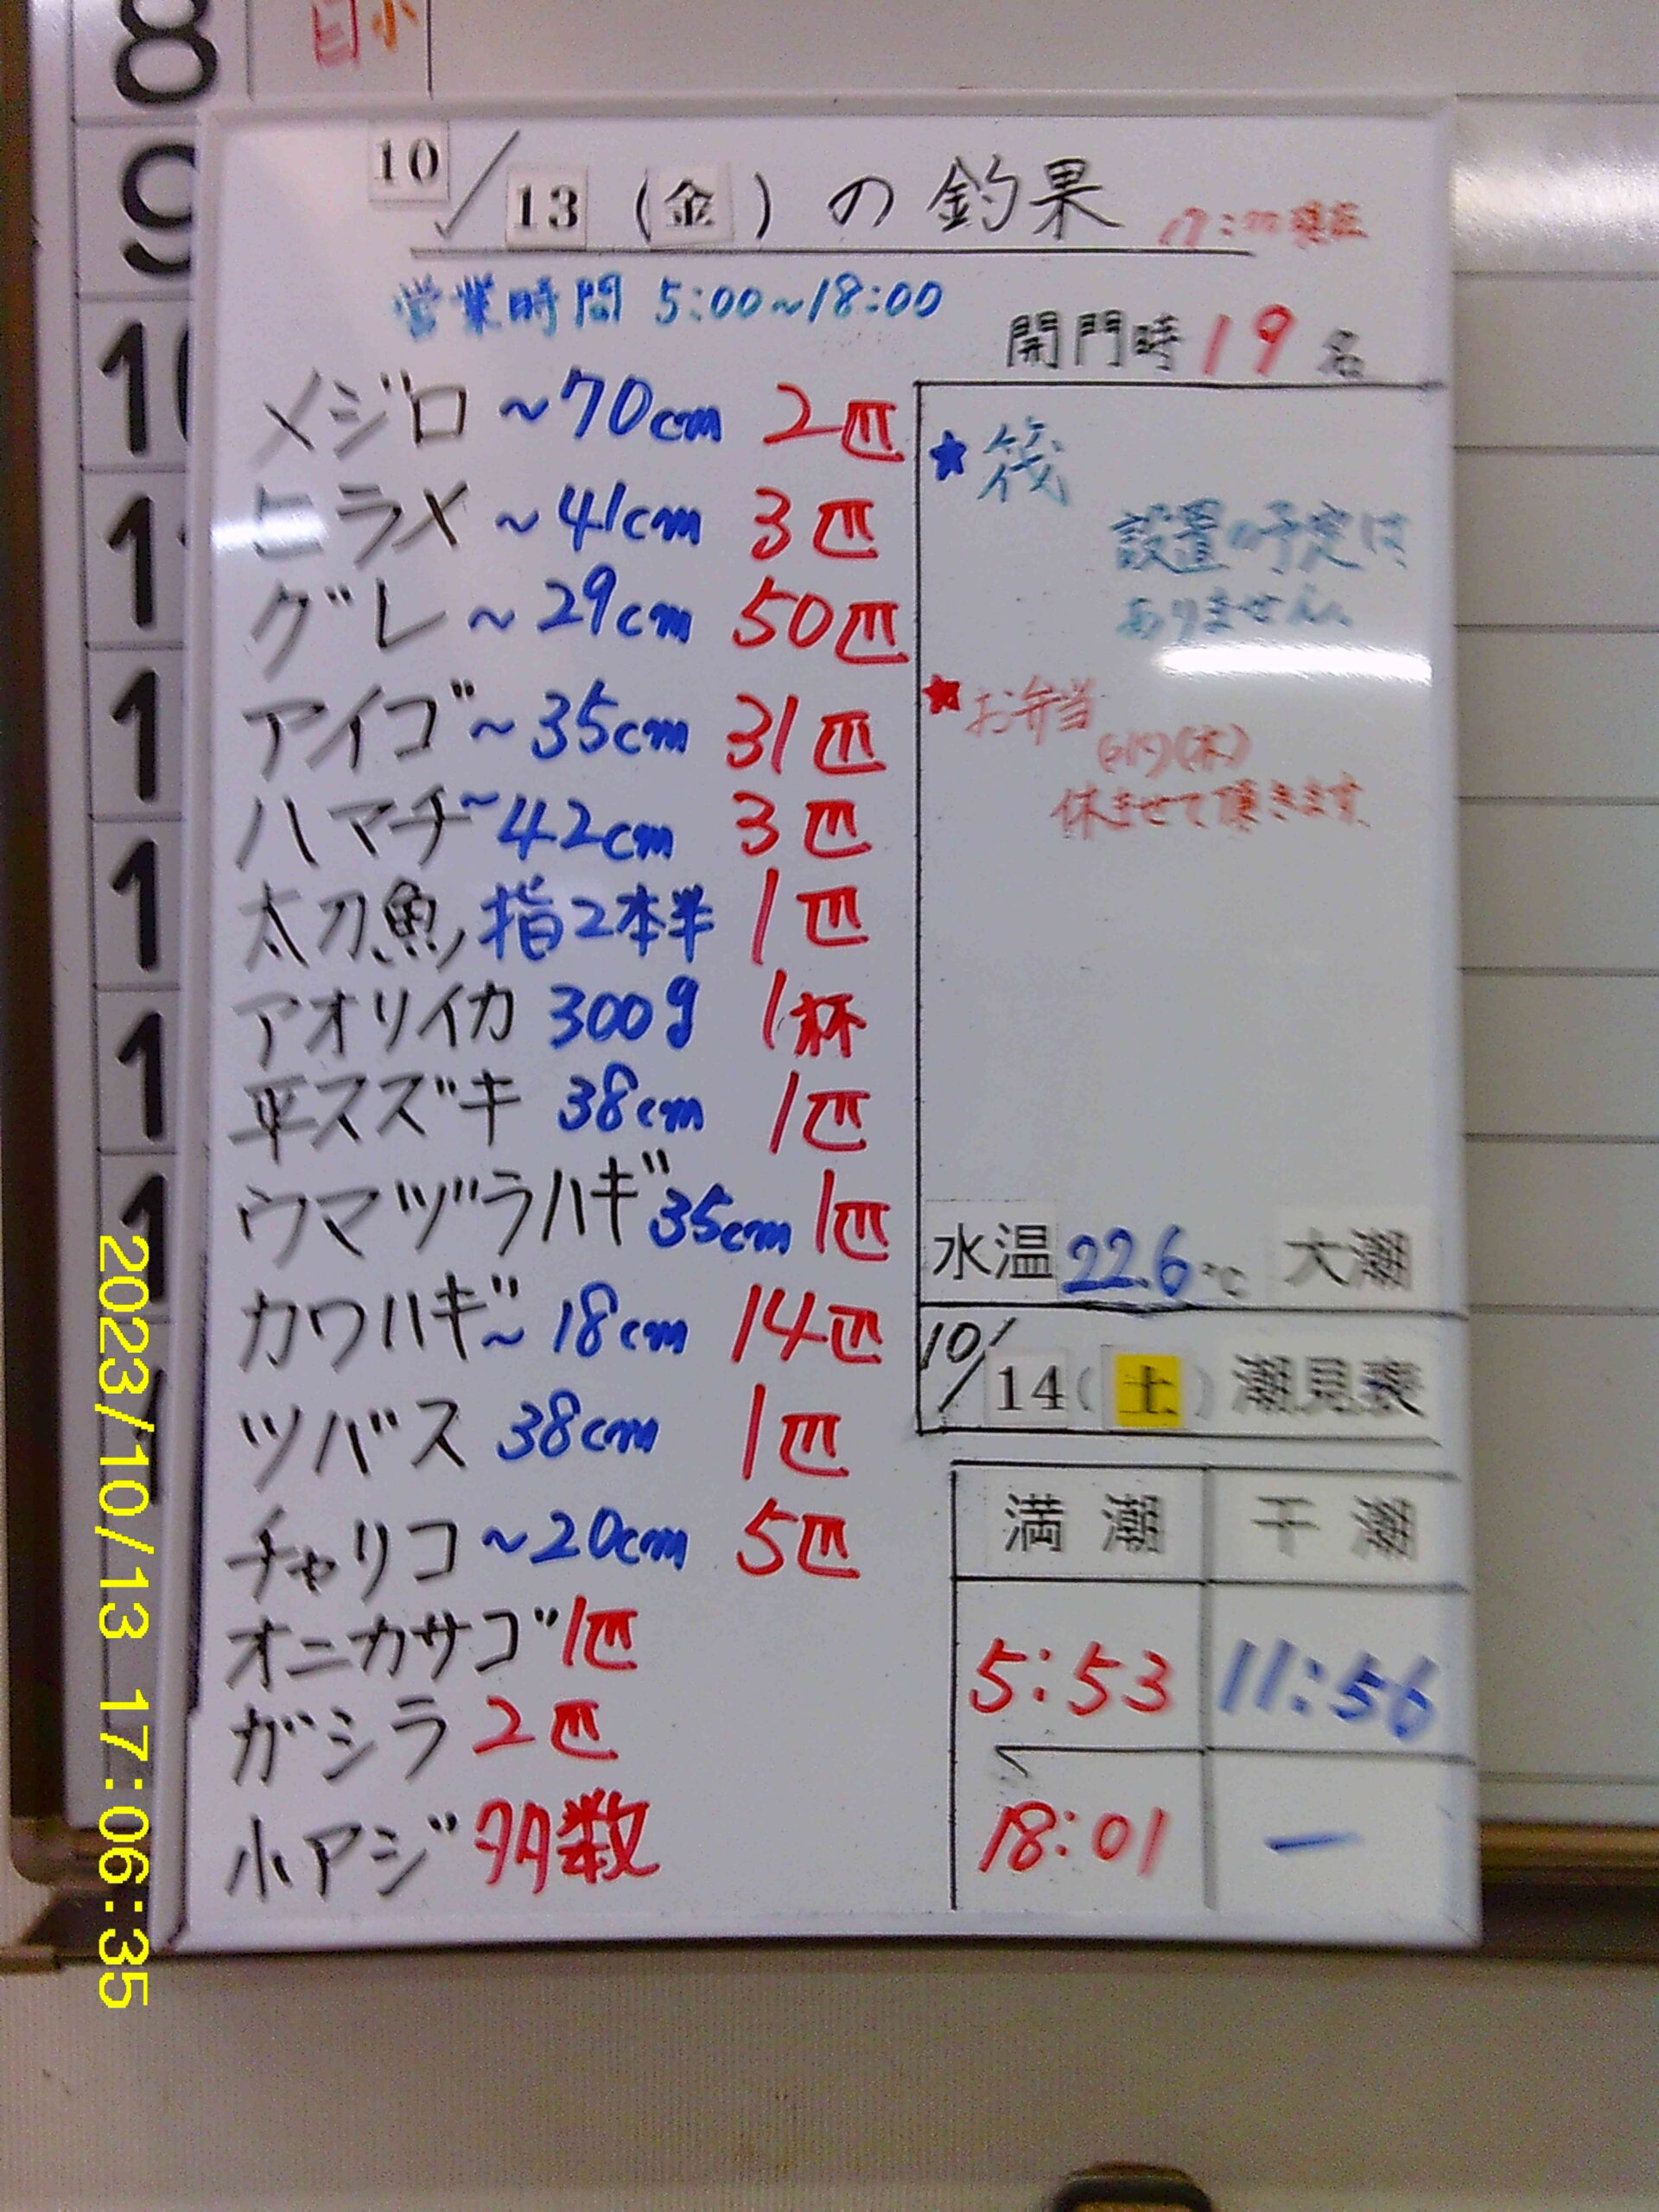 8
目小
9
10/13(金)の釣果 17:00現在
営業時間 5:00~18:00
開門時19名
メジロ ~70cm 2匹
ヒラメ ~41cm 3匹
グレ ~29cm 50匹
アイゴ ~35cm 31匹
ハマチ ~42cm 3匹
太刀魚 指2本半 1匹
アオリイカ 300g 1杯
平スズキ 38cm 1匹
ウマヅラハギ 35cm 1匹
カワハギ ~18cm 14匹
ツバス 38cm 1匹
チャリコ ~20cm 5匹
オニカサゴ 1匹
ガシラ 2匹
小アジ 多数
★筏
設置の予定は
ありません。
★お弁当
休ませて頂きます
水温 22.6℃ 大潮
10/14(土)潮見表
満潮 干潮
5:53 11:56
18:01 ー
2023/10/13 17:06:35